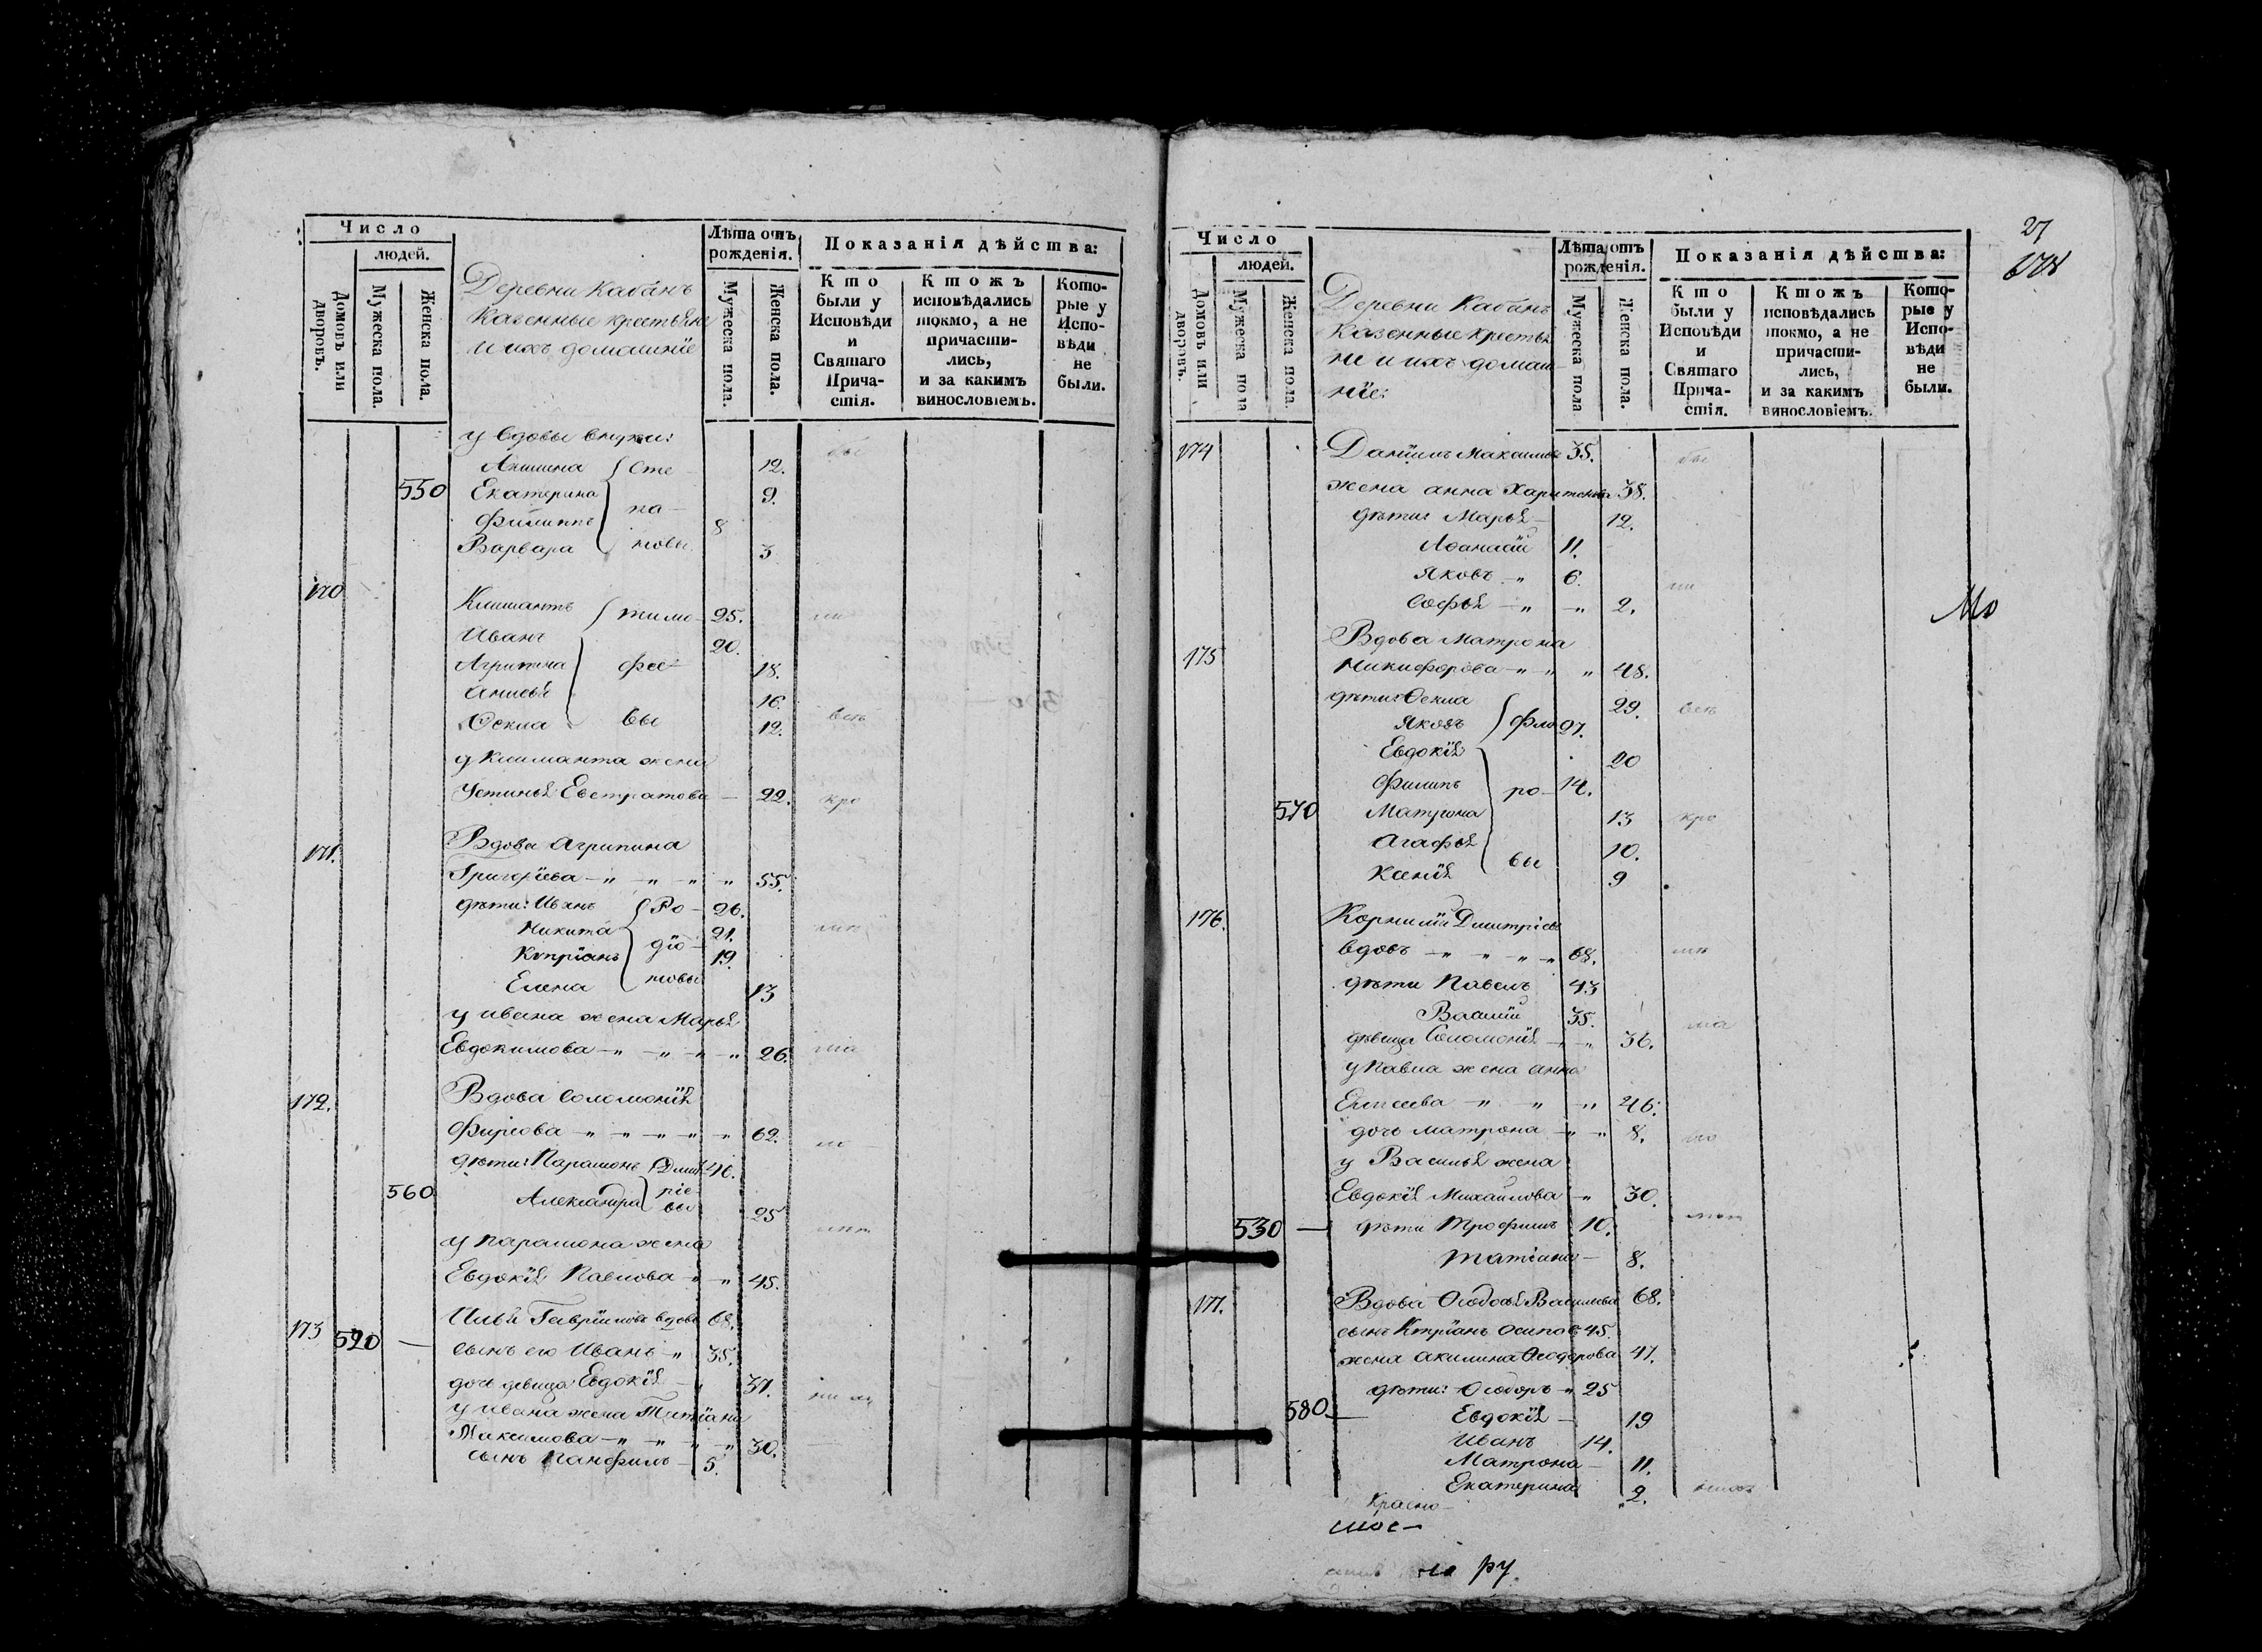 Число
людей.
Домовъ или дворовъ.
Мужеска пола.
Женска пола.
Деревни Кабанъ
казенные крестьяне
и ихъ домашніе
Лѣта отъ рожденія.
Мужеска пола.
Женска пола.
Показанія дѣйства:
Кто были у Исповѣди и Святаго Причастія.
Ктожъ исповѣдались токмо, а не причастились, и за какимъ винословіемъ.
Которые у Исповѣди не были.
у вдовы внуки:
Акилина Сте- 12.
550 Екатерина 9.
Филиппъ па- 8
Варвара новы 3
170 Климантъ Тимо- 25.
Иванъ 20.
Агрипина фее- 18.
Анисья 16.
Ѳекла вы 12.
у Климанта жена
Устинья Евстратова — 22.
171. Вдова Агрипина
Григорьева „ „ „ „ 55.
дѣти: Иванъ Ро- 26.
Никита 21.
Кипріянъ діо- 19.
Елена новы 13
у ивана жена Марья
Евдокимова „ „ „ „ 26.
172. Вдова Соломонія
Фирсова „ „ „ „ „ 62.
дѣти: Парамонъ Дмит 46.
560 Александра ріе- вы 25
у парамона жена
Евдокія Павлова „ „ 45.
173 Илья Гавриловъ вдовъ 68.
520 — сынъ его Иванъ „ 35.
дочь девица Евдокія 37.
у ивана жена Татіана
Максимова „ „ „ „ 30.
сынъ Панфилъ 5.
27
Число
людей.
Домовъ или дворовъ.
Мужеска пола
Женска пола.
Деревни Кабанъ
казенные крестья
не и ихъ домаш
ніе:
Лѣта отъ рожденія.
Мужеска пола
Женска пола.
Показанія дѣйства:
Кто были у Исповѣди и Святаго Причастія.
Ктожъ исповѣдались токмо, а не причастились, и за какимъ винословіемъ.
Которые у Исповѣди не были.
174 Даніилъ Максимовъ 35.
жена анна Харитонова 38.
дѣти: Марья — 12.
Аѳанасій 11.
Яковъ „ 6.
Софья „ „ 2.
Вдова Матрона
175 Никифорова „ „ „ 48.
дѣти: Ѳекла 29.
Яковъ Фло 27.
Евдокія 20
Филипъ ро- 14.
570 Матрона 13
Агафья 10.
Ксенія вы 9
176. Корнилій Дмитріевъ
вдовъ „ „ „ „ 68.
дѣти Павелъ 43
Василій 35.
дѣвица Соломонія „ „ 36.
у Павла жена анна
Елисеева „ „ „ 46.
дочь матрона „ „ 8.
у Василья жена
Евдокія Михайлова „ 30.
530 — дѣти Трофимъ 10.
Татіана — 8.
177. Вдова Ѳеодосья Васильева 68.
сынъ Кипріанъ Осиповъ 45.
жена акилина Ѳеодорова 47.
дѣти: Ѳеодоръ „ 25
580 — Евдокія — 19
Иванъ 14.
Матрона — 11.
Екатерина 2.